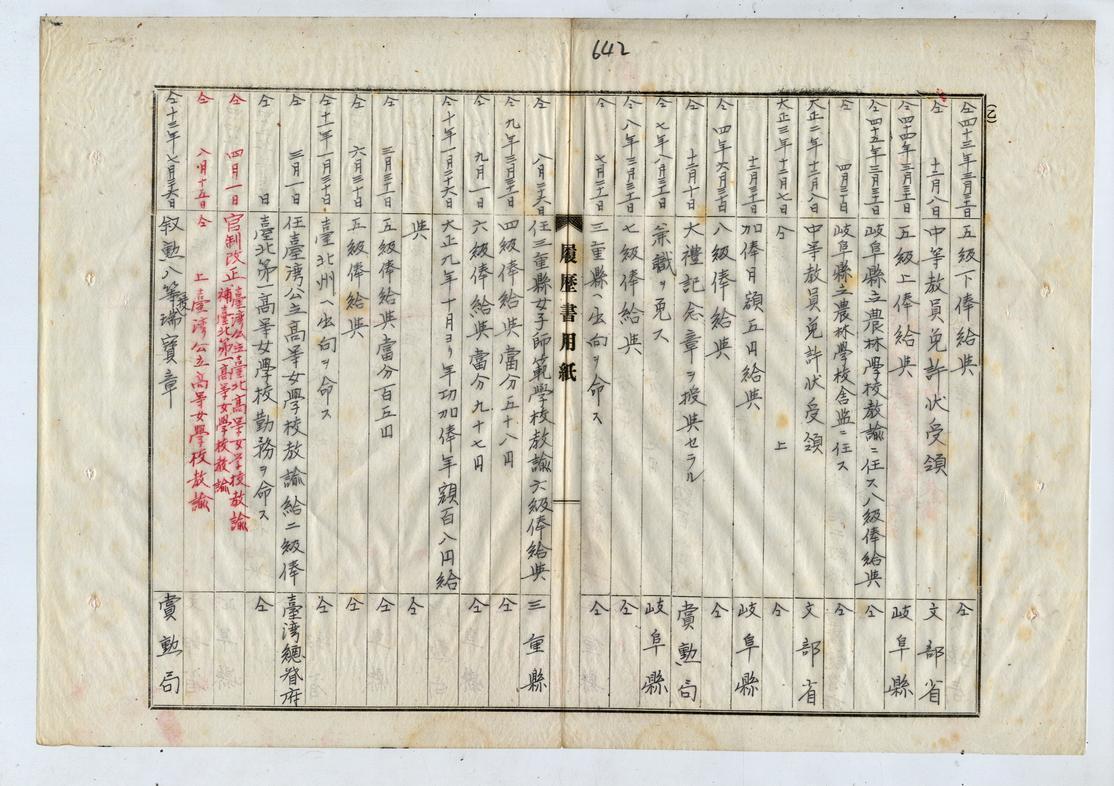 642
(乙)
仝四十三年三月三十一日 五級下俸給與 仝
仝 十二月八日 中等教員免許状受領 文部省
仝四十四年三月三十一日 五級上俸給與 岐阜縣
仝四十五年三月三十一日 岐阜縣立農林學校教諭ニ任ス八級俸給與 仝
仝 四月三十日 岐阜縣立農林學校舎監ニ任ス 仝
大正二年十二月八日 中等教員免許状受領 文部省
大正三年十二月七日 仝 上 仝
十二月三十一日 加俸月額五円給與 岐阜縣
仝 四年六月三十日 八級俸給與 仝
仝 十二月十日 大禮記念章ヲ授與セラル 賞勲局
仝 七年八月三十一日 兼職ヲ免ス 岐阜縣
仝 八年三月三十一日 七級俸給與 仝
仝 七月三十一日 三重縣ヘ出向ヲ命ス 仝
履歴書用紙
仝 八月二十六日 任三重縣女子師範學校教諭六級俸給與 三重縣
仝 九年三月三十一日 四級俸給與當分五十八円 仝
仝 九月一日 六級俸給與當分九十七円 仝
仝 十年一月二十六日 大正九年十月ヨリ年功加俸年額百八円給
與 仝
仝 三月三十一日 五級俸給與當分百五円 仝
仝 六月三十日 五級俸給與 仝
仝十一年一月三十日 臺北州ヘ出向ヲ命ス 仝
仝 三月一日 任臺湾公立高等女學校教諭給二級俸 臺湾總督府
仝 日 臺北第一高等女學校勤務ヲ命ス 仝
仝 四月一日 官制改正 臺湾公立臺北高等女学校教諭
補臺北第一高等女學校教諭
仝 八月十五日 仝 上 臺湾公立高等女學校教諭
仝十三年七月二十六日 叙勲八等授瑞寶章 賞勲局